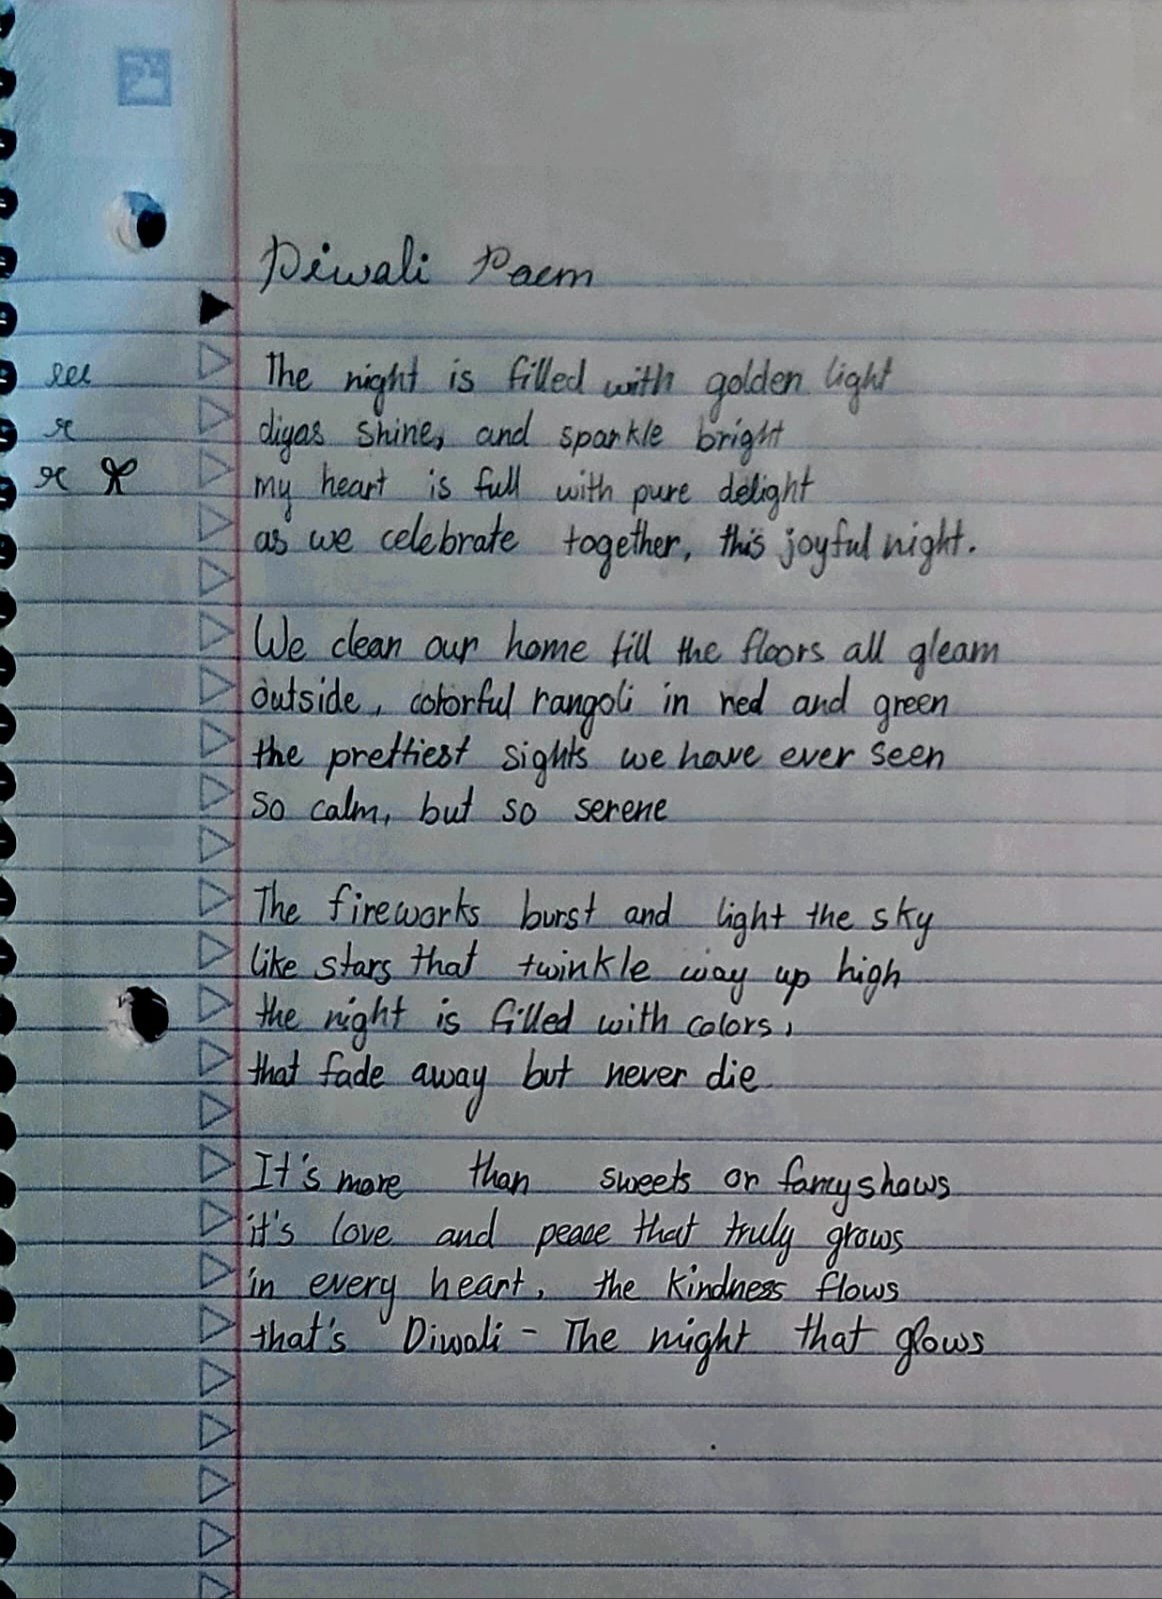 Diwali Poem
The night is filled with golden light
diyas shine, and sparkle bright
my heart is full with pure delight
as we celebrate together, this joyful night.
We clean our home till the floors all gleam
outside, colorful rangoli in red and green
the prettiest sights we have ever seen
So calm, but so serene
The fireworks burst and light the sky
like stars that twinkle way up high
the night is filled with colors,
that fade away but never die
It's more than sweets or fancy shows
it's love and peace that truly grows
in every heart, the kindness flows
that's Diwali - The night that glows